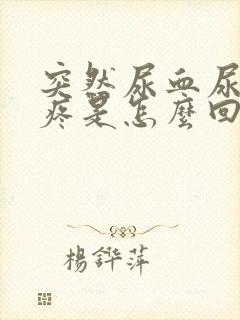 突然尿血尿
疼是怎麼回
楊鏵萍